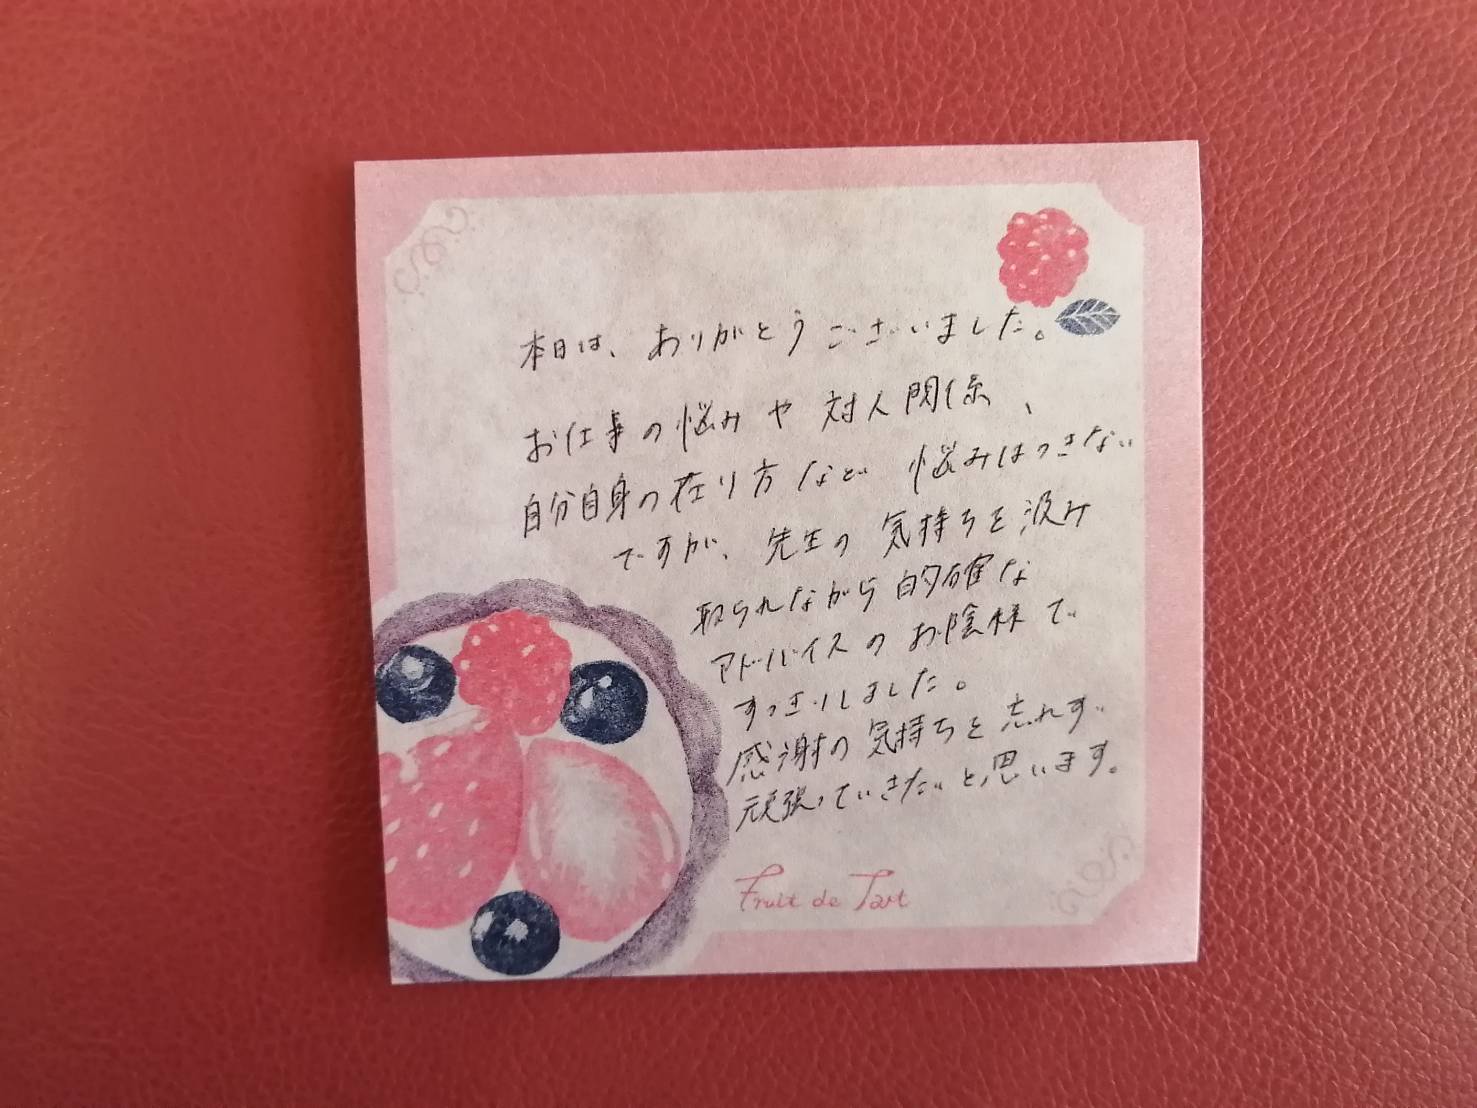 本日は、ありがとうございました。
お仕事の悩みや対人関係、
自分自身の在り方など悩みはつきない
ですが、先生の気持ちを汲み
取られながら的確な
アドバイスのお陰様で
すっきりしました。
感謝の気持ちを忘れず
頑張っていきたいと思います。
Fruit de Tart